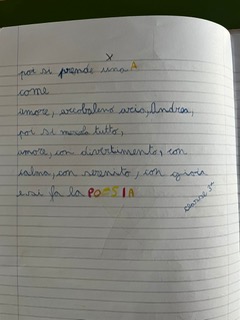 x
poi si prende una A
come
amore, arcobaleno aria, Andrea,
poi si mescola tutto,
amore, con divertimento, con
calma, con serenità, con gioia
e si fa la POESIA
classe 3ª